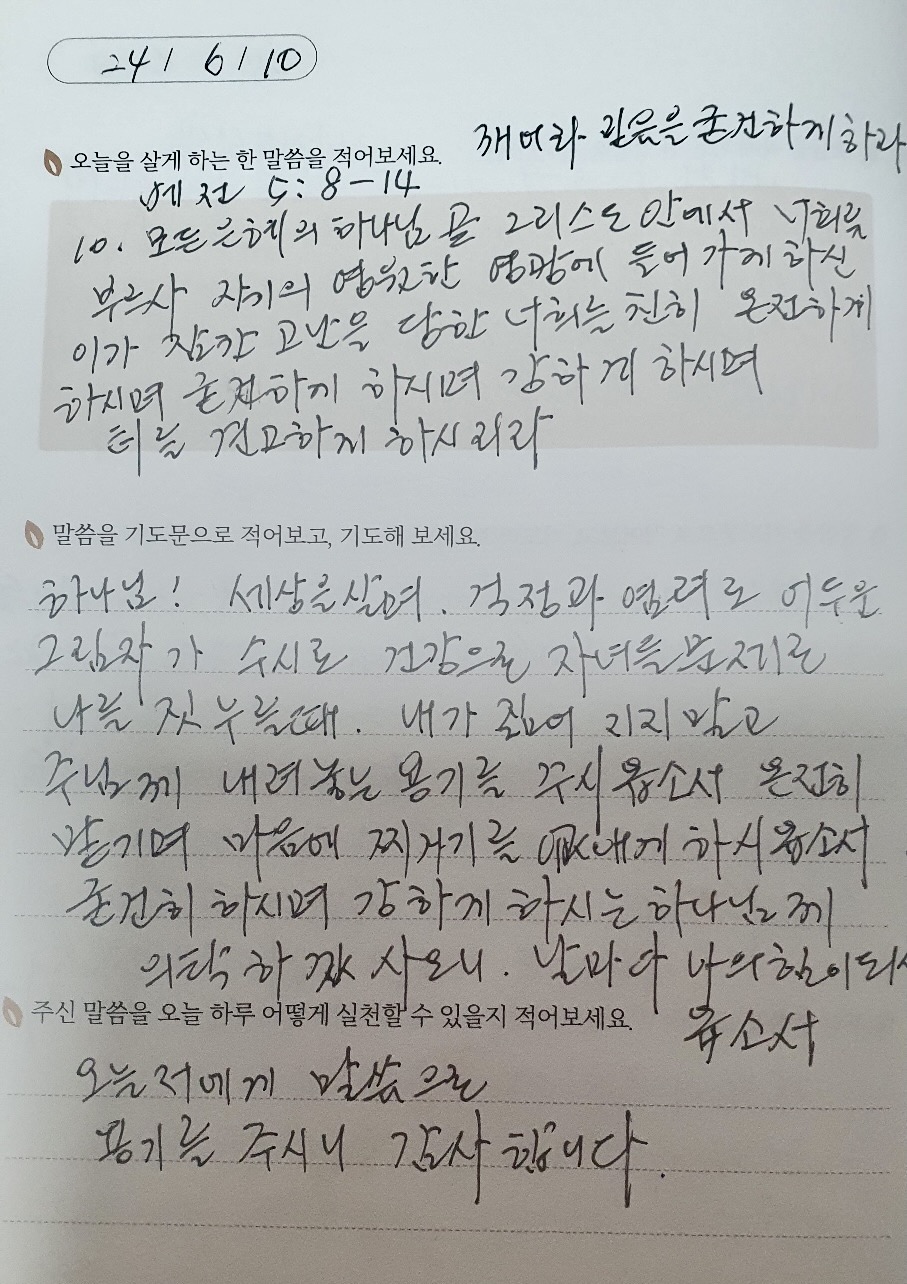 24 / 6 / 10
깨어라 믿음을 굳건하게 하라
오늘을 살게 하는 한 말씀을 적어보세요.
벧전 5:8-14
10. 모든 은혜의 하나님 곧 그리스도 안에서 너희를
부르사 자기의 영원한 영광에 들어가게 하신
이가 잠깐 고난을 당한 너희를 친히 온전하게
하시며 굳건하게 하시며 강하게 하시며
터를 견고하게 하시리라
말씀을 기도문으로 적어보고, 기도해 보세요.
하나님! 세상을 살며. 걱정과 염려로 어두운
그림자가 수시로 건강으로 자녀들 문제로
나를 짓누를때. 내가 짊어지지 말고
주님께 내려놓는 용기를 주시옵소서 온전히
맡기며 마음에 찌거기를 하시옵소서
굳건히 하시며 강하게 하시는 하나님께
의탁하 사오니. 날마다 나의 힘이 되시
옵소서
주신 말씀을 오늘 하루 어떻게 실천할 수 있을지 적어보세요.
오늘 저에게 말씀으로
용기를 주시니 감사합니다.